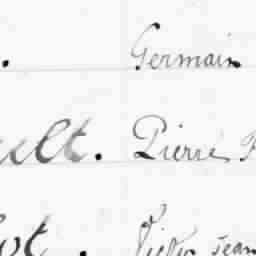 . Germain
ult. Pierre
ot. Victor Jean